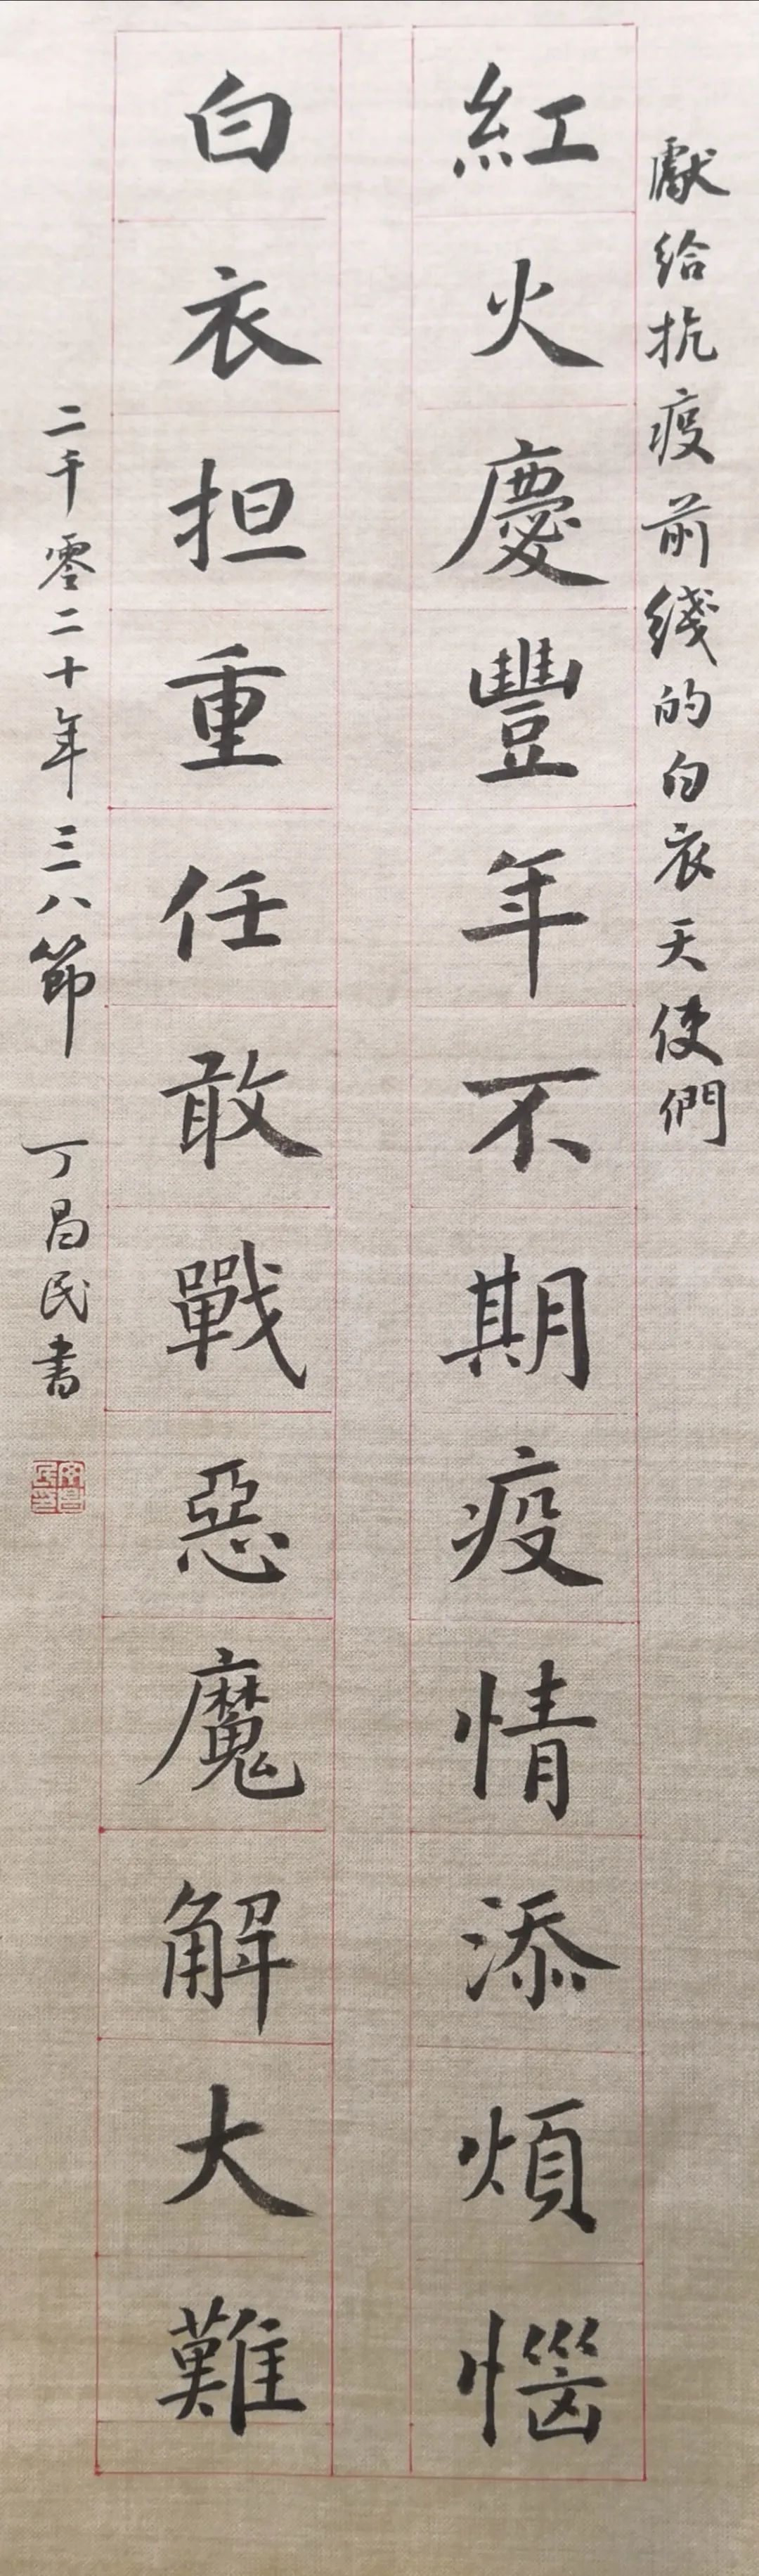 獻给抗疫前綫的白衣天使們
紅火慶豐年不期疫情添煩惱
白衣担重任敢戰惡魔解大難
二千零二十年三八節 丁昌民書